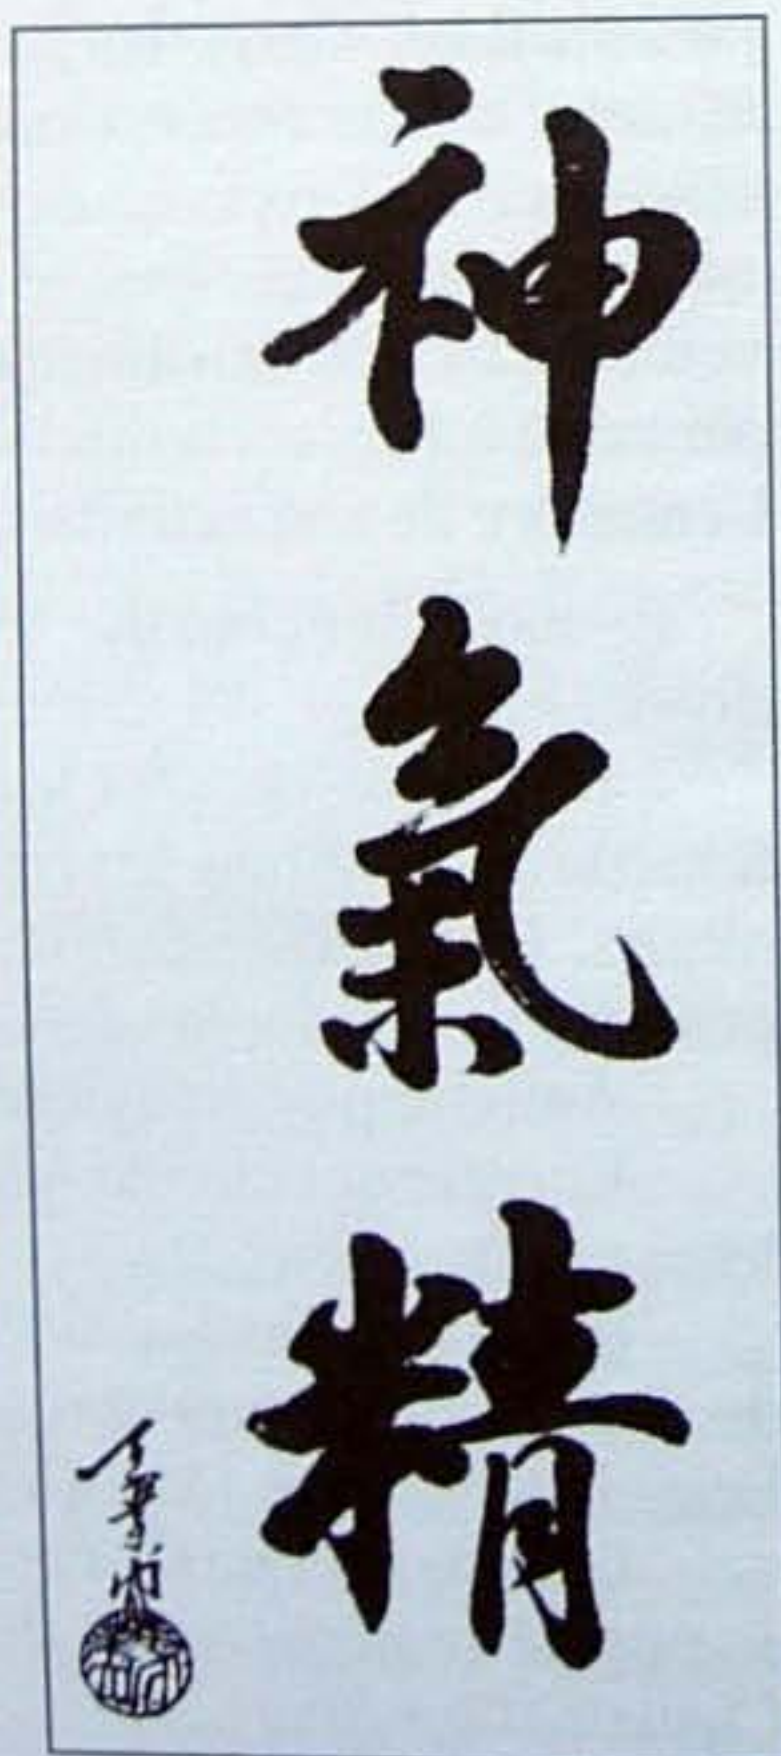 神氣精